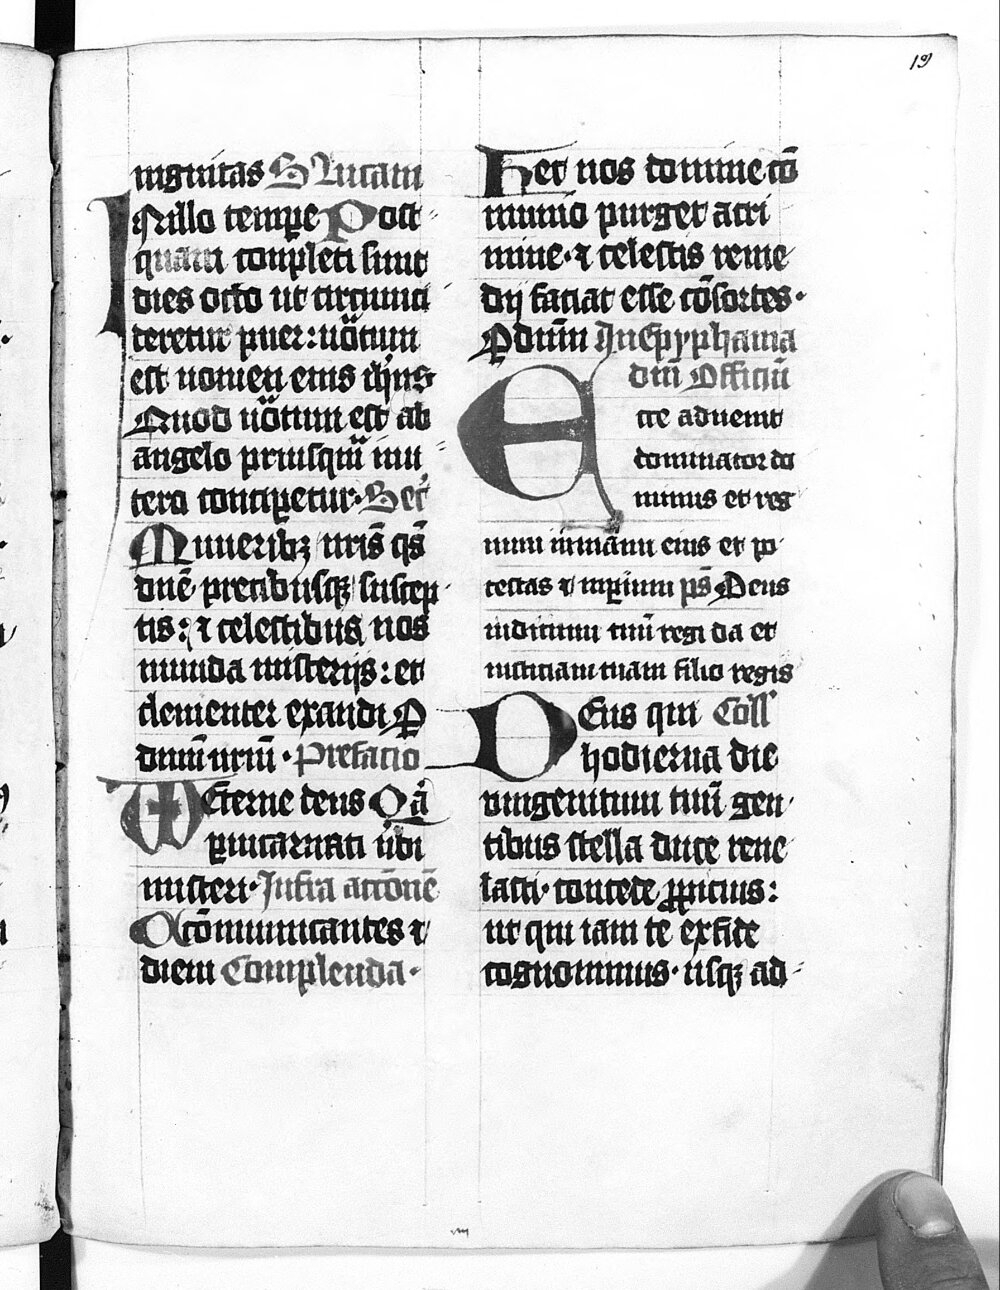 19
nignitas S Lucam
In illo tempe Post
quam conpleti sunt
dies octo ut circunci
deretur puer: uōtum
est nomen eius ihūs
Quod uōtum est ab
angelo priusquā in u
tero conciperetur. Secr̄
Munerib3 nr̄is qs̄
dnē precibusq3 suscep
tis: ⁊ celestibus nos
munda misterijs: et
clementer exaudi P
dnm̄ nrm̄. Prefacio
Eterne deus Qā
p incarnati ūbi
misteri. Infra acconē
cōmunicantes ⁊
diem Complenda.
Hec nos domine cō
munio purget a cri
mine. ⁊ celestis reme
dij faciat esse cōsortes.
P dnm̄ In Epyphania
dnī Officiū
Ecce aduenit
dominator do
minus et reg
num in manu eius et po
testas ⁊ inperium ps̄ Deus
iudicium tuū regi da et
iusticiam tuam filio regis
Deus qui Coll'
hodierna die
unigenitum tuū gen
tibus stella duce reue
lasti. concede ꝓpicius:
ut qui iam te ex fide
cognouimus. usq3 ad